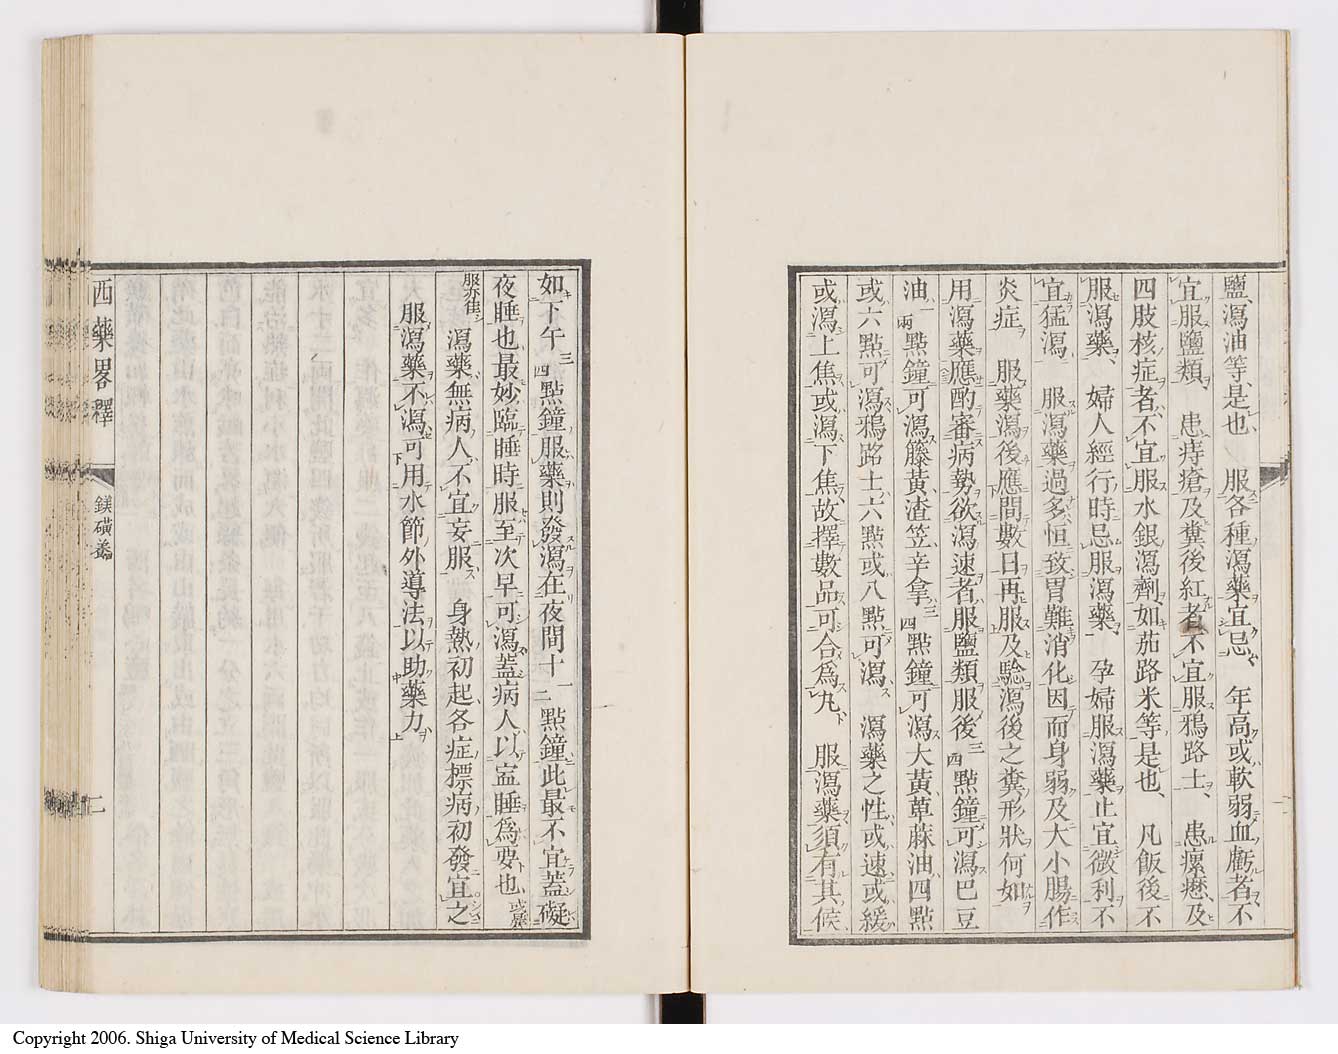 鹽瀉油等是也 服各種瀉藥宜忌 年高或軟弱血虧者不
宜服鹽類 患痔瘡及糞後紅者不宜服鴉路土 患瘰癧及
四肢核症者不宜服水銀瀉劑如茄路米等是也 凡飯後不
服瀉藥 婦人經行時忌服瀉藥 孕婦服瀉藥止宜微利不
宜猛瀉 服瀉藥過多恒致胃難消化因而身弱及大小腸作
炎症 服藥瀉後應間數日再服及驗瀉後之糞形狀何如
用瀉藥應酌審病勢欲瀉速者服鹽類服後三四點鐘可瀉巴豆
油一兩點鐘可瀉籐黃渣笠辛拿三四點鐘可瀉大黃萆蔴油四點
或六點可瀉鴉路土六點或八點可瀉 瀉藥之性或速或緩
或瀉上焦或瀉下焦故擇數品可合爲丸 服瀉藥須有其候
如下午三四點鐘服藥則發瀉在夜間十一二點鐘此最不宜蓋礙
夜睡也最妙臨睡時服至次早可瀉蓋病人以寍睡爲要也 或晨
服亦佳 瀉藥無病人不宜妄服 身熱初起各症標病初發宜之
服瀉藥不瀉可用水節外導法以助藥力
西藥畧釋
鎂磺養
二
Copyright 2006. Shiga University of Medical Science Library